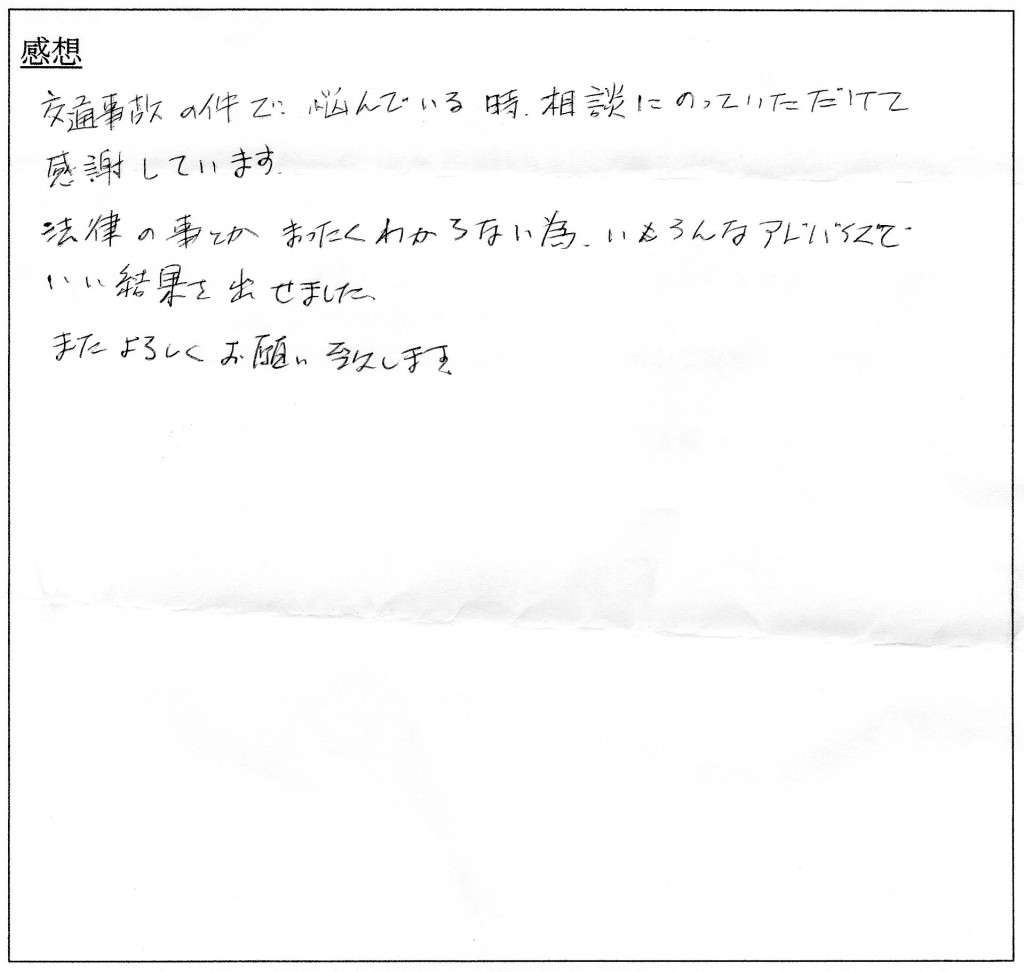 感想
交通事故の件で、悩んでいる時、相談にのっていただけて
感謝しています。
法律の事とか まったくわからない為、いろんなアドバイスで
いい結果を出せました。
またよろしくお願い致します